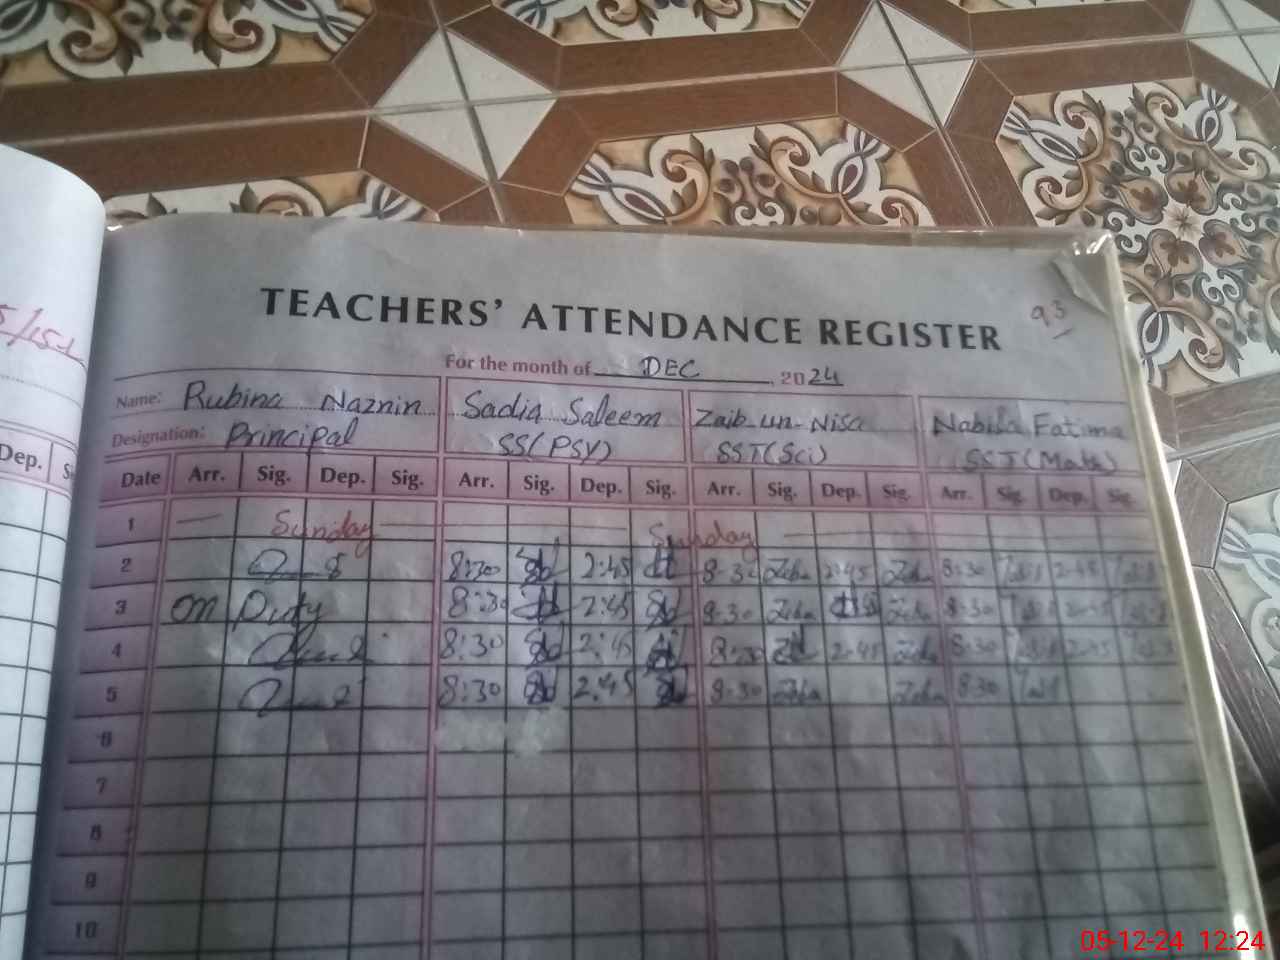 5/15-1
93
TEACHERS' ATTENDANCE REGISTER
For the month of DEC, 2024
Name: Rubina Naznin Sadia Saleem Zaib-un-Nisa Nabila Fatima
Designation: Principal SS(PSY) SST(Sci) SST(Math)
Dep. Date Arr. Sig. Dep. Sig. Arr. Sig. Dep. Sig. Arr. Sig. Dep. Sig. Arr. Sig. Dep. Sig.
1 Sunday Sunday
2 8:30 2:45 8-30 Zeba 2-45 Zeba 8:30 2-45
3 on Duty 8:30 2:45 8-30 Zeba Zeba 8-30 2-45
4 8:30 2:45 8:30 2-45 Zeba 8-30 2-45
5 8:30 2:45 8-30 Zeba Zeba 8-30
6
7
8
9
10
05-12-24 12:24